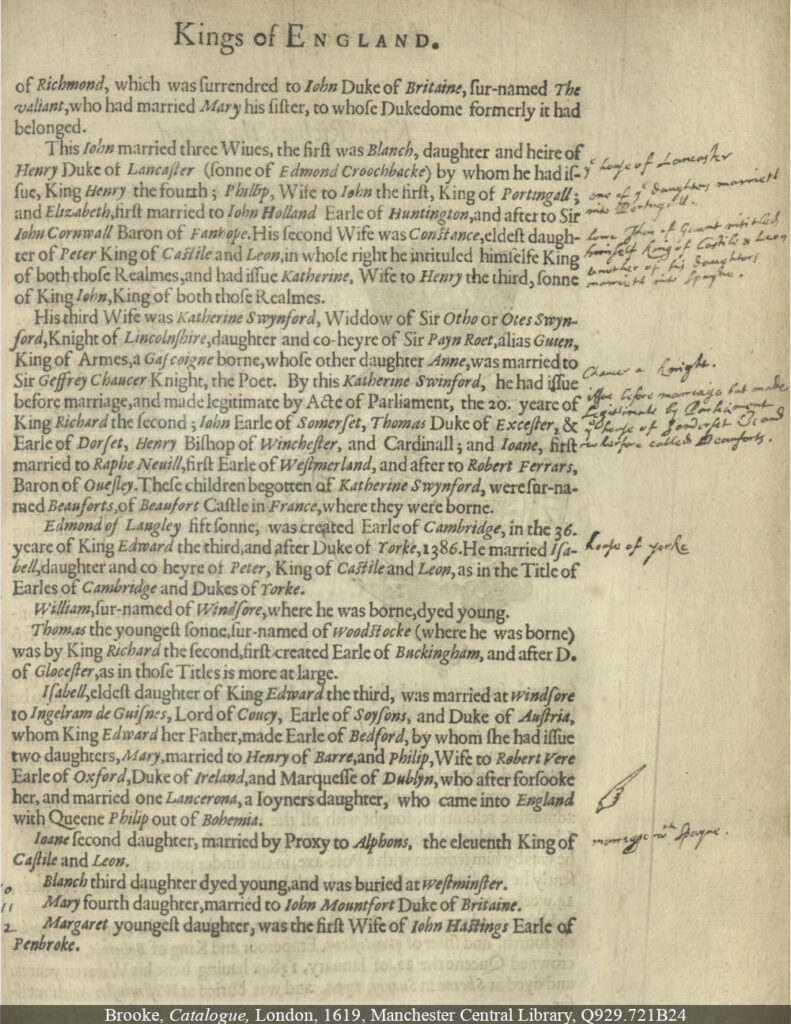 Kings of ENGLAND.
of Richmond, which was ſurrendred to Iohn Duke of Britaine, ſur-named The
valiant, who had married Mary his ſiſter, to whoſe Dukedome formerly it had
belonged.
This Iohn married three Wiues, the firſt was Blanch, daughter and heire of
Henry Duke of Lancaſter (ſonne of Edmond Croochbacke) by whom he had iſ-
ſue, King Henry the fourth; Phillip, Wife to Iohn the firſt, King of Portingall;
and Elizabeth, firſt married to Iohn Holland Earle of Huntington, and after to Sir
Iohn Cornwall Baron of Fanhope. His ſecond Wife was Conſtance, eldeſt daugh-
ter of Peter King of Caſtile and Leon, in whoſe right he intituled himſelfe King
of both thoſe Realmes, and had iſſue Katherine, Wife to Henry the third, ſonne
of King Iohn, King of both thoſe Realmes.
yͤ house of Lancaster
one of yͤ daughters marrieth
into Portugall.
himself King of Castile & Leon
another of his daughters
marrieth into Spayne.
His third Wife was Katherine Swynford, Widdow of Sir Otho or Otes Swyn-
ford, Knight of Lincolnſhire, daughter and co-heyre of Sir Payn Roet, alias Guien,
King of Armes, a Gaſcoigne borne, whoſe other daughter Anne, was married to
Sir Geffrey Chaucer Knight, the Poet. By this Katherine Swinford, he had iſſue
before marriage, and made legitimate by Acte of Parliament, the 20. yeare of
King Richard the ſecond; Iohn Earle of Somerſet, Thomas Duke of Exceſter, &
Earle of Dorſet, Henry Biſhop of Wincheſter, and Cardinall; and Ioane, firſt
married to Raphe Neuill, firſt Earle of Weſtmerland, and after to Robert Ferrars,
Baron of Oueſley. Theſe children begotten of Katherine Swynford, were ſur-na-
med Beauforts, of Beaufort Caſtle in France, where they were borne.
Chaucer a Knight.
issue before marriage but made
legitimate by Parliament
called Beauforts.
Edmond of Langley fift ſonne, was created Earle of Cambridge, in the 36.
yeare of King Edward the third, and after Duke of Yorke, 1386. He married Iſa-
bell, daughter and co heyre of Peter, King of Caſtile and Leon, as in the Title of
Earles of Cambridge and Dukes of Yorke.
house of yorke
William, ſur-named of Windſore, where he was borne, dyed young.
Thomas the youngeſt ſonne, ſur-named of Woodſtocke (where he was borne)
was by King Richard the ſecond, firſt created Earle of Buckingham, and after D.
of Gloceſter, as in thoſe Titles is more at large.
Iſabell, eldeſt daughter of King Edward the third, was married at Windſore
to Ingelram de Guiſnes, Lord of Coucy, Earle of Soyſons, and Duke of Auſtria,
whom King Edward her Father, made Earle of Bedford, by whom ſhe had iſſue
two daughters, Mary, married to Henry of Barre, and Philip, Wife to Robert Vere
Earle of Oxford, Duke of Ireland, and Marqueſſe of Dublyn, who after forſooke
her, and married one Lancerona, a Ioyners daughter, who came into England
with Queene Philip out of Bohemia.
Ioane ſecond daughter, married by Proxy to Alphons, the eleuenth King of
Caſtile and Leon.
marriage wth Spayne.
Blanch third daughter dyed young, and was buried at Weſtminſter.
11 Mary fourth daughter, married to Iohn Mountfort Duke of Britaine.
2 Margaret youngeſt daughter, was the firſt Wife of Iohn Haſtings Earle of
Penbroke.
Brooke, Catalogue, London, 1619, Manchester Central Library, Q929.721B24